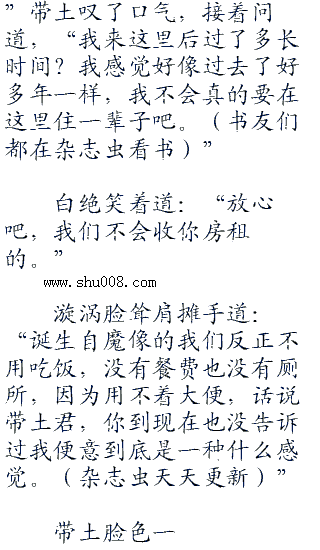 ”带土叹了口气，接着问
道，“我来这里后过了多长
时间？我感觉好像过去了好
多年一样，我不会真的要在
这里住一辈子吧。（书友们
都在杂志虫看书）”
白绝笑着道：“放心
吧，我们不会收你房租
的。”
www.shu008.com
漩涡脸耸肩摊手道：
“诞生自魔像的我们反正不
用吃饭，没有餐费也没有厕
所，因为用不着大便，话说
带土君，你到现在也没告诉
过我便意到底是一种什么感
觉。（杂志虫天天更新）”
带土脸色一